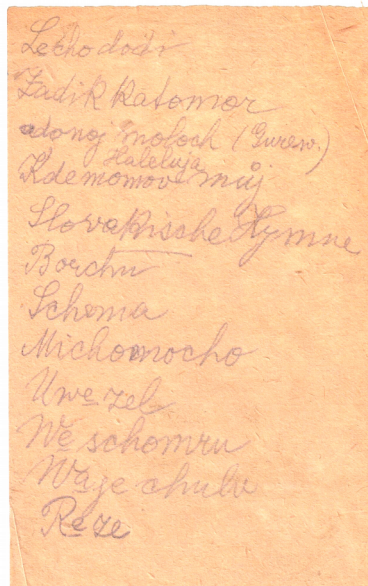 Lecho dodi
Zadik Katomor
adonoj moloch (Gurew.)
Haleluja
Kdemomov můj
Slovakische Hymne
Borchu
Schema
Michomocho
Uwe zel
We schomru
Waje chulu
Reze